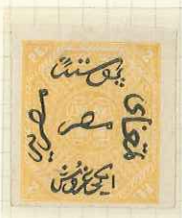 پوستهٔ
تمغای
مصر
مصریه
ایکی غروش
PE